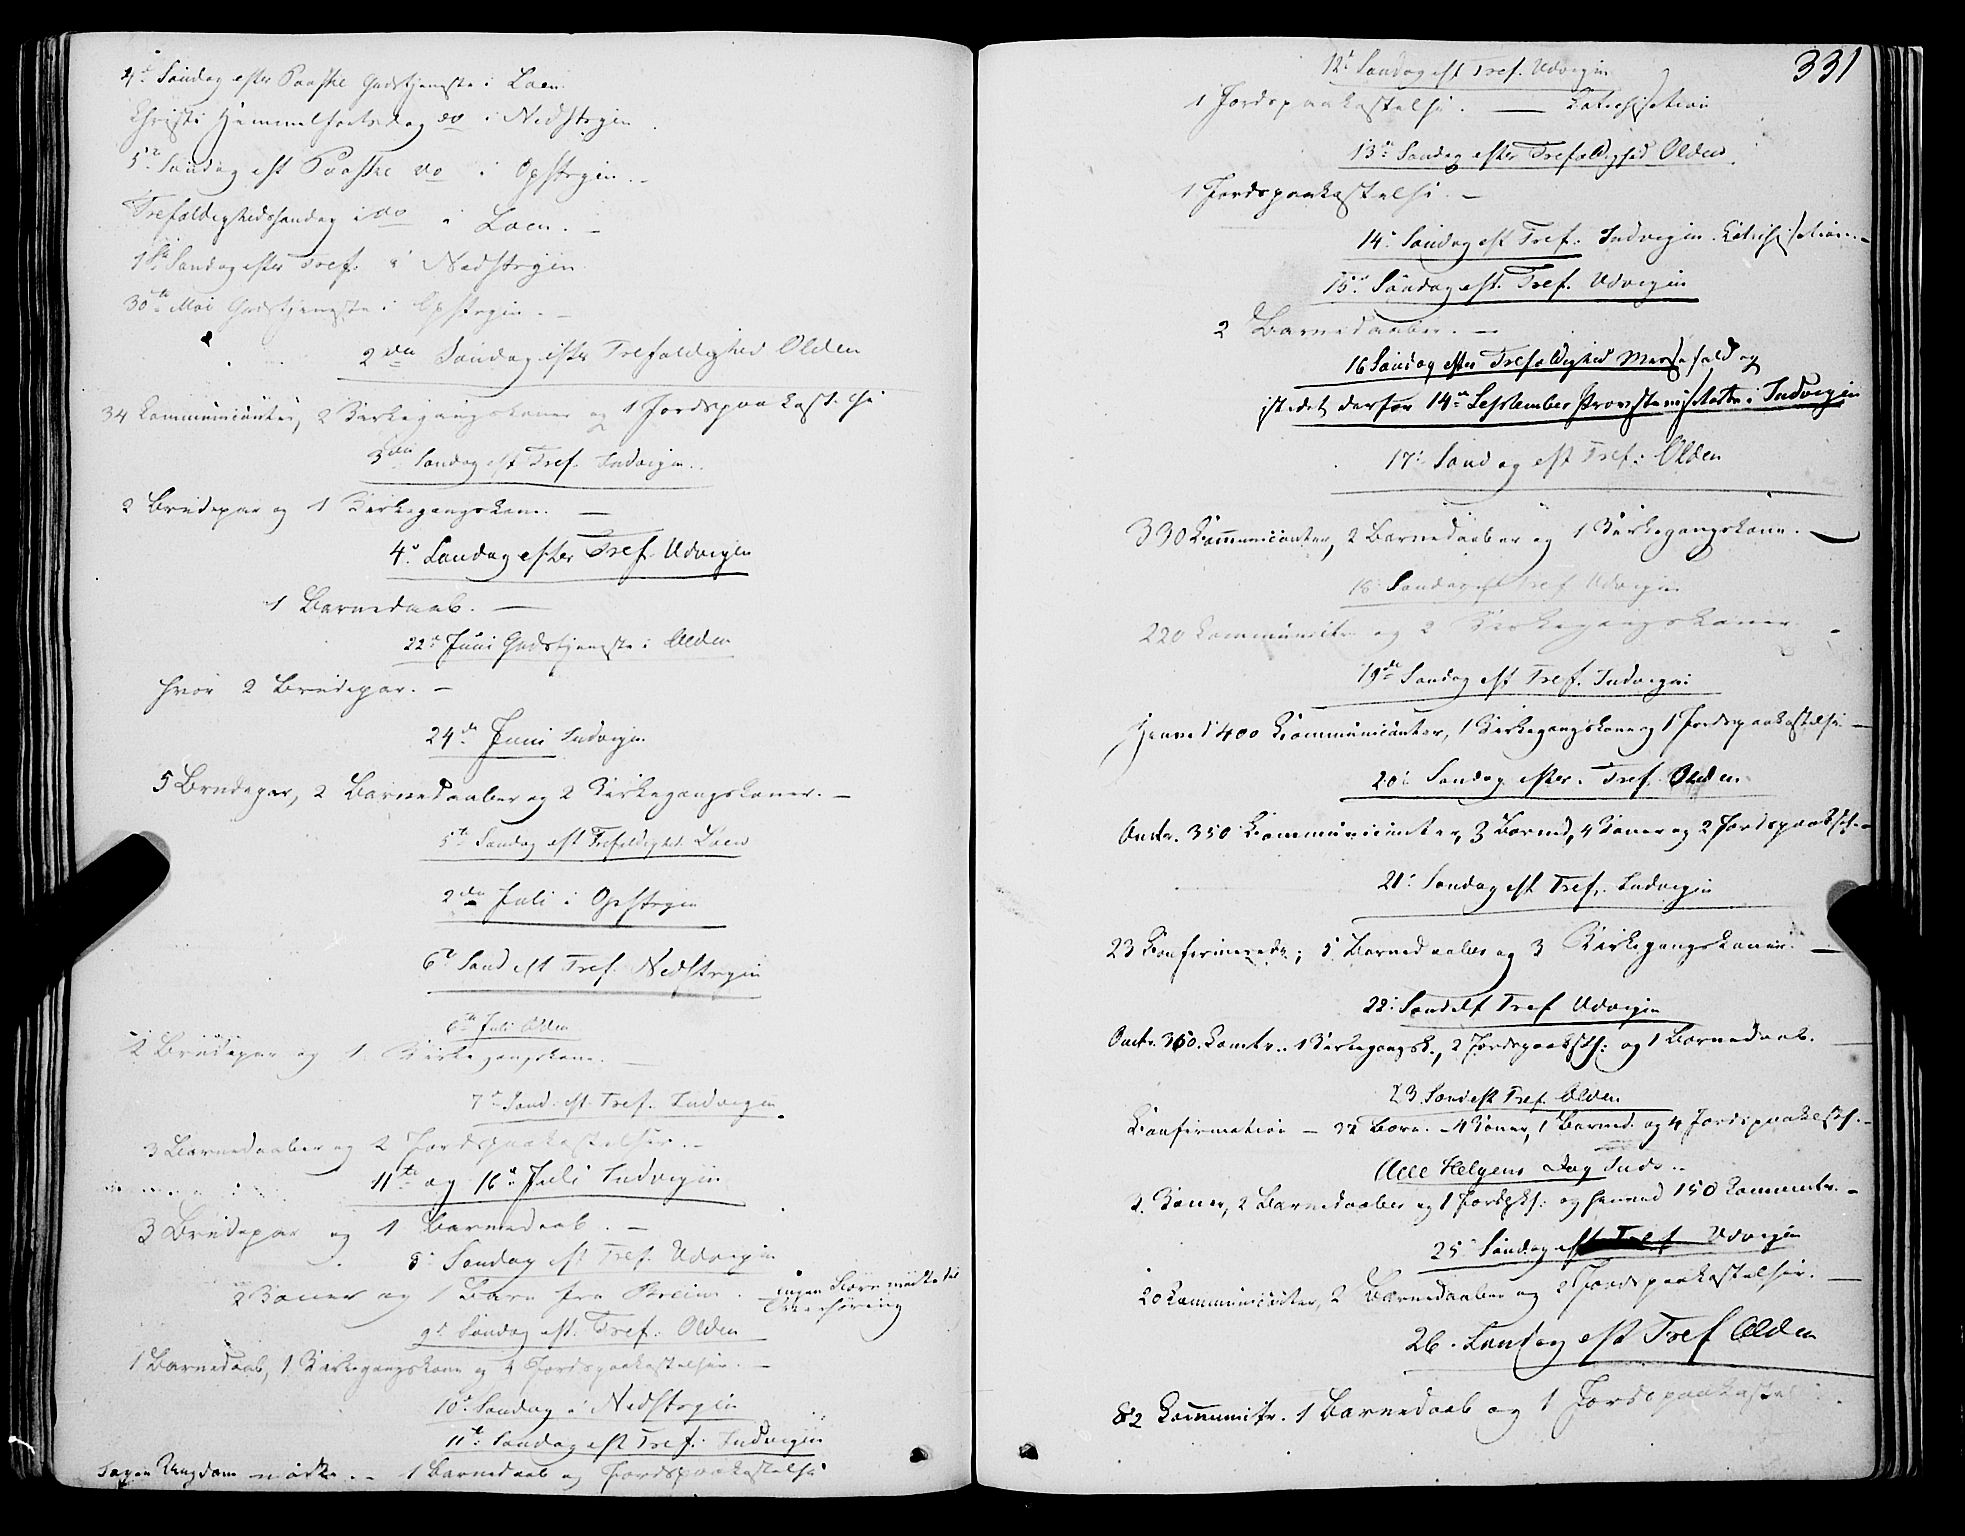 4de Søndag efter Paaske Gudstjeneste i Loen.
Christi Himmelfartsdag do i Nedstryen.
5te Søndag eft Paaske do i Opstryen. –
Trefoldighedssøndag do i Loen. –
1ste Søndag efter Tref. i Nedstryen
30te Mai Gudstjeneste i Opstryen. –
2den Søndag efter Trefoldighed Olden
34 Communicanter, 2 Kirkegangskoner og 1 Jordspaakastelse
3die Søndag eft Tref. Indvigen.
2 Brudepar og 1 Kirkegangskone. –
4de Søndag efter Tref. Udvigen
1 Barnedaab. –
22de Juni Gudstjeneste i Olden
hvor 2 Brudepar. –
24de Juni Indvigen
5 Brudepar, 2 Barnedaaber og 2 Kirkegangskoner. –
5te Søndag eft Trefoldighed Loen
2den Juli i Opstryen
6te Sønd eft Tref. Nedstryen
6te Juli Olden
2 Brudepar og 1 Kirkegangskone.
7de Sønd. eft. Tref. Indvigen.
3 Barnedaaber og 2 Jordspaakastelser. –
11te og 16de Juli Indvigen
3 Brudepar og 1 Barnedaab. –
8de Søndag eft Tref. Udvigen
2 Koner og 1 Barn fra Breim. – ingen Børn mødte til
Overhøring
9de Søndag eft. Tref: Olden
1 Barnedaab, 1 Kirkegangskone og 4 Jordspaakastelser. –
10de Søndag i Nedstryen
11te Søndag eft Tref: Indvigen
Ingen Ungdom mødte. – 1 Barnedaab og Jordspaakastelse
331
12te Søndag eft Tref. Udvigen
1 Jordspaakastelse. — Catechisation
13de Søndag efter Trefoldighed Olden
1 Jordspaakastelse. –
14de Søndag eft Tref: Indvigen. Catechisation. –
15de Søndag eft. Tref. Udvigen
2 Barnedaaber. –
16 Søndag efter Trefoldighed Messefald og
istedet derfor 14de September Provstevisitats i Indvigen
17de Søndag eft Tref: Olden
330 Communicanter, 2 Barnedaaber og 1 Kirkegangskone. –
18de Søndag eft Tref Udvigen
220 Communictr og 2 Kirkegangskoner. –
19de Søndag eft Tref. Indvigen
Henved 400 Communicanter, 1 Kirkegangskone og 1 Jordspaakastelse –
20de Søndag efter Tref. Olden
Omtr. 350 Communicanter, 3 Barned, 4 Koner og 2 Jordspaakst. –
21de Søndag eft Tref. Indvigen
23 Confirmerede; 5 Barnedaaber og 3 Kirkegangskoner. –
22de Sønd eft Tref Udvigen
Omtr. 360 Comtr. 1 Kirkegangsk., 2 Jordspaakst: og 1 Barnedaab.
23 Sønd eft Tref. Olden
Confirmation – 32 Børn. – 4 Koner, 1 Barned. og 4 Jordspaakast. –
Alle Helgens Dag Indv.
2 Koner, 2 Barnedaaber og 1 Jordpks: og henved 150 Communctr. –
25de Søndag eft Tref Udvigen
20 Communicanter, 2 Barnedaaber og 2 Jordspaakastelser. –
26. Søndag eft Tref Olden
82 Communitr. 1 Barnedaab og 1 Jordspaakastel